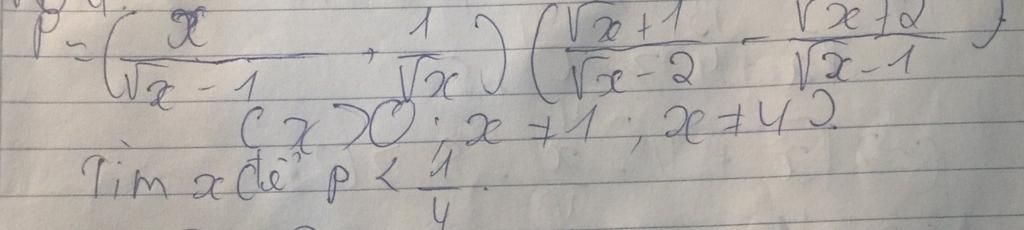 P = (x/(√x - 1) · 1/√x) ((√x + 1)/(√x - 2) - (√x + 2)/(√x - 1))
(x > 0 ; x ≠ 1 ; x ≠ 4)
Tìm x để P < 1/4.